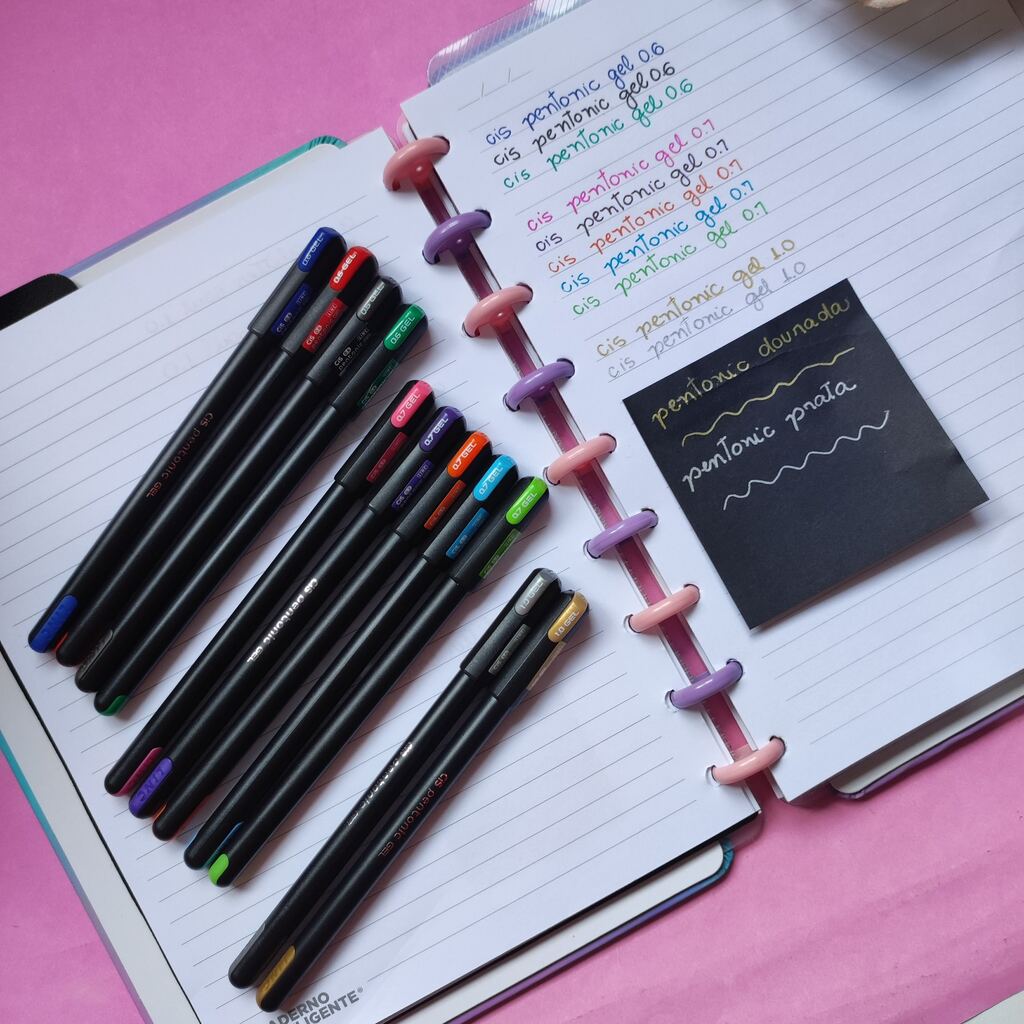 cis pentonic gel 0.6
cis pentonic gel 0.6
cis pentonic gel 0.6
cis pentonic gel 0.7
cis pentonic gel 0.7
cis pentonic gel 0.7
cis pentonic gel 0.7
cis pentonic gel 0.7
cis pentonic gel 1.0
cis pentonic gel 1.0
pentonic dourada
pentonic prata
0.6 GEL
0.6 GEL
0.6 GEL
0.7 GEL
0.7 GEL
0.7 GEL
0.7 GEL
0.7 GEL
1.0 GEL
1.0 GEL
cis pentonic GEL
cis pentonic GEL
cis pentonic GEL
cis pentonic GEL
ADERNO
LIGENTE®